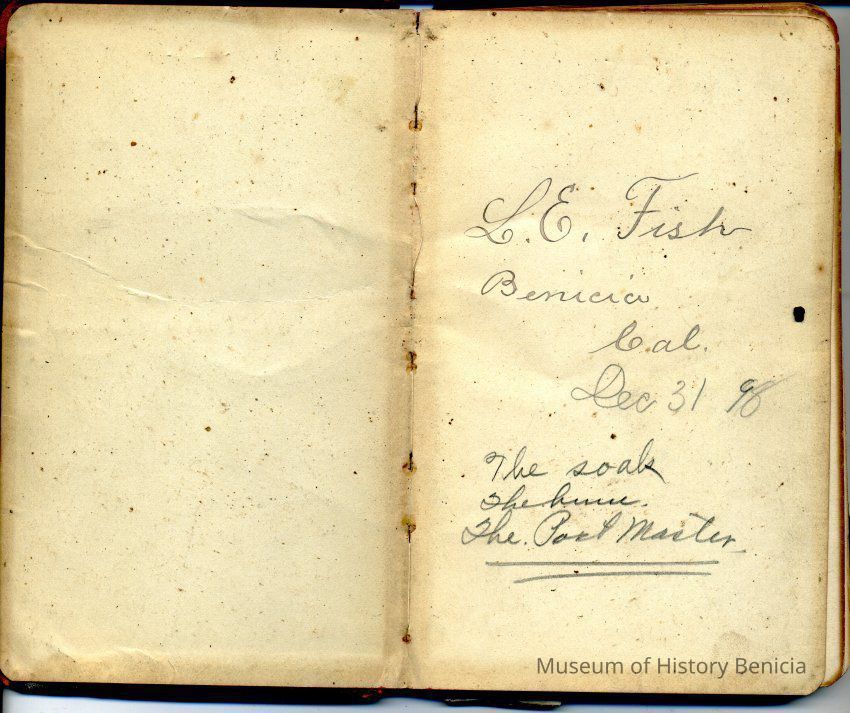 L. E. Fish
Benicia
Cal.
Dec 31 98
The soak
The bum.
The Post Master
Museum of History Benicia